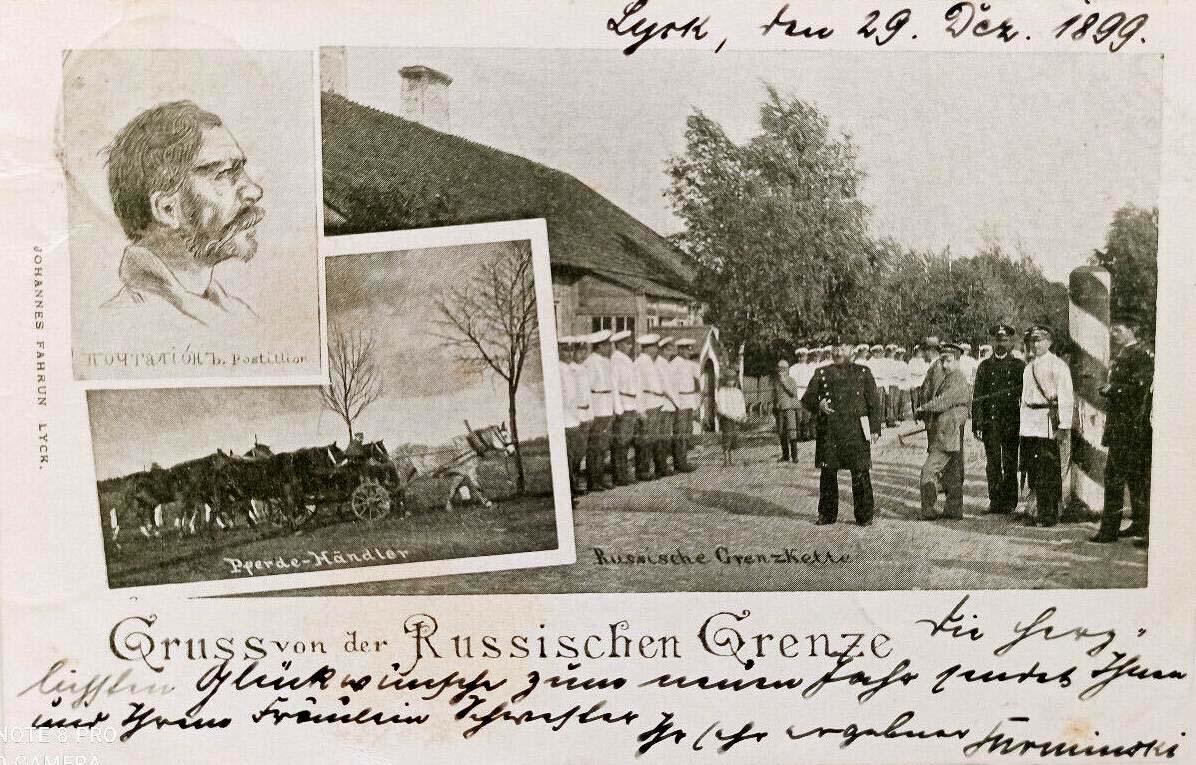 Lyck, den 29. Dez. 1899.
JOHANNES FAHRUN LYCK.
ПОЧТАЛІОНЪ. Postillion
Pferde-Händler
Russische Grenzkette
Gruss von der Russischen Grenze
Die herz-
lichsten Glückwünsche zum neuen Jahr sendet Ihnen
und Ihrem Fräulein Schwester
Ihr sehr ergebener
NOTE 8 PRO
CAMERA